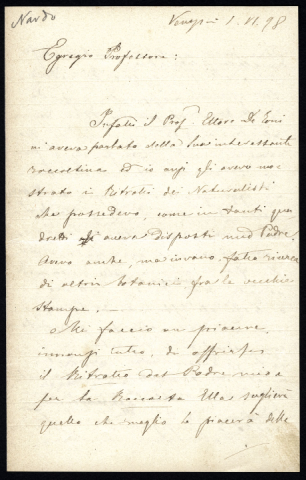 Nardo
Venezia 1. VI. 98
Egregio Professore:
Infatti il Prof. Ettore De Toni
mi aveva parlato della Sua interessante
Raccoltina ed io anzi gli avevo mo-
strato i Ritratti dei Naturalisti
che possedevo, come in tanti qua
dretti li aveva disposti mio Padre.
Avevo anche, ma invano, fatto ricerca
di altri botanici fra le vecchie
stampe.
Mi faccio un piacere,
innanzi tutto, di offrirle
il Ritratto del Padre mio
per la Raccolta. Ella sceglierà
quello che meglio le piacerà delle